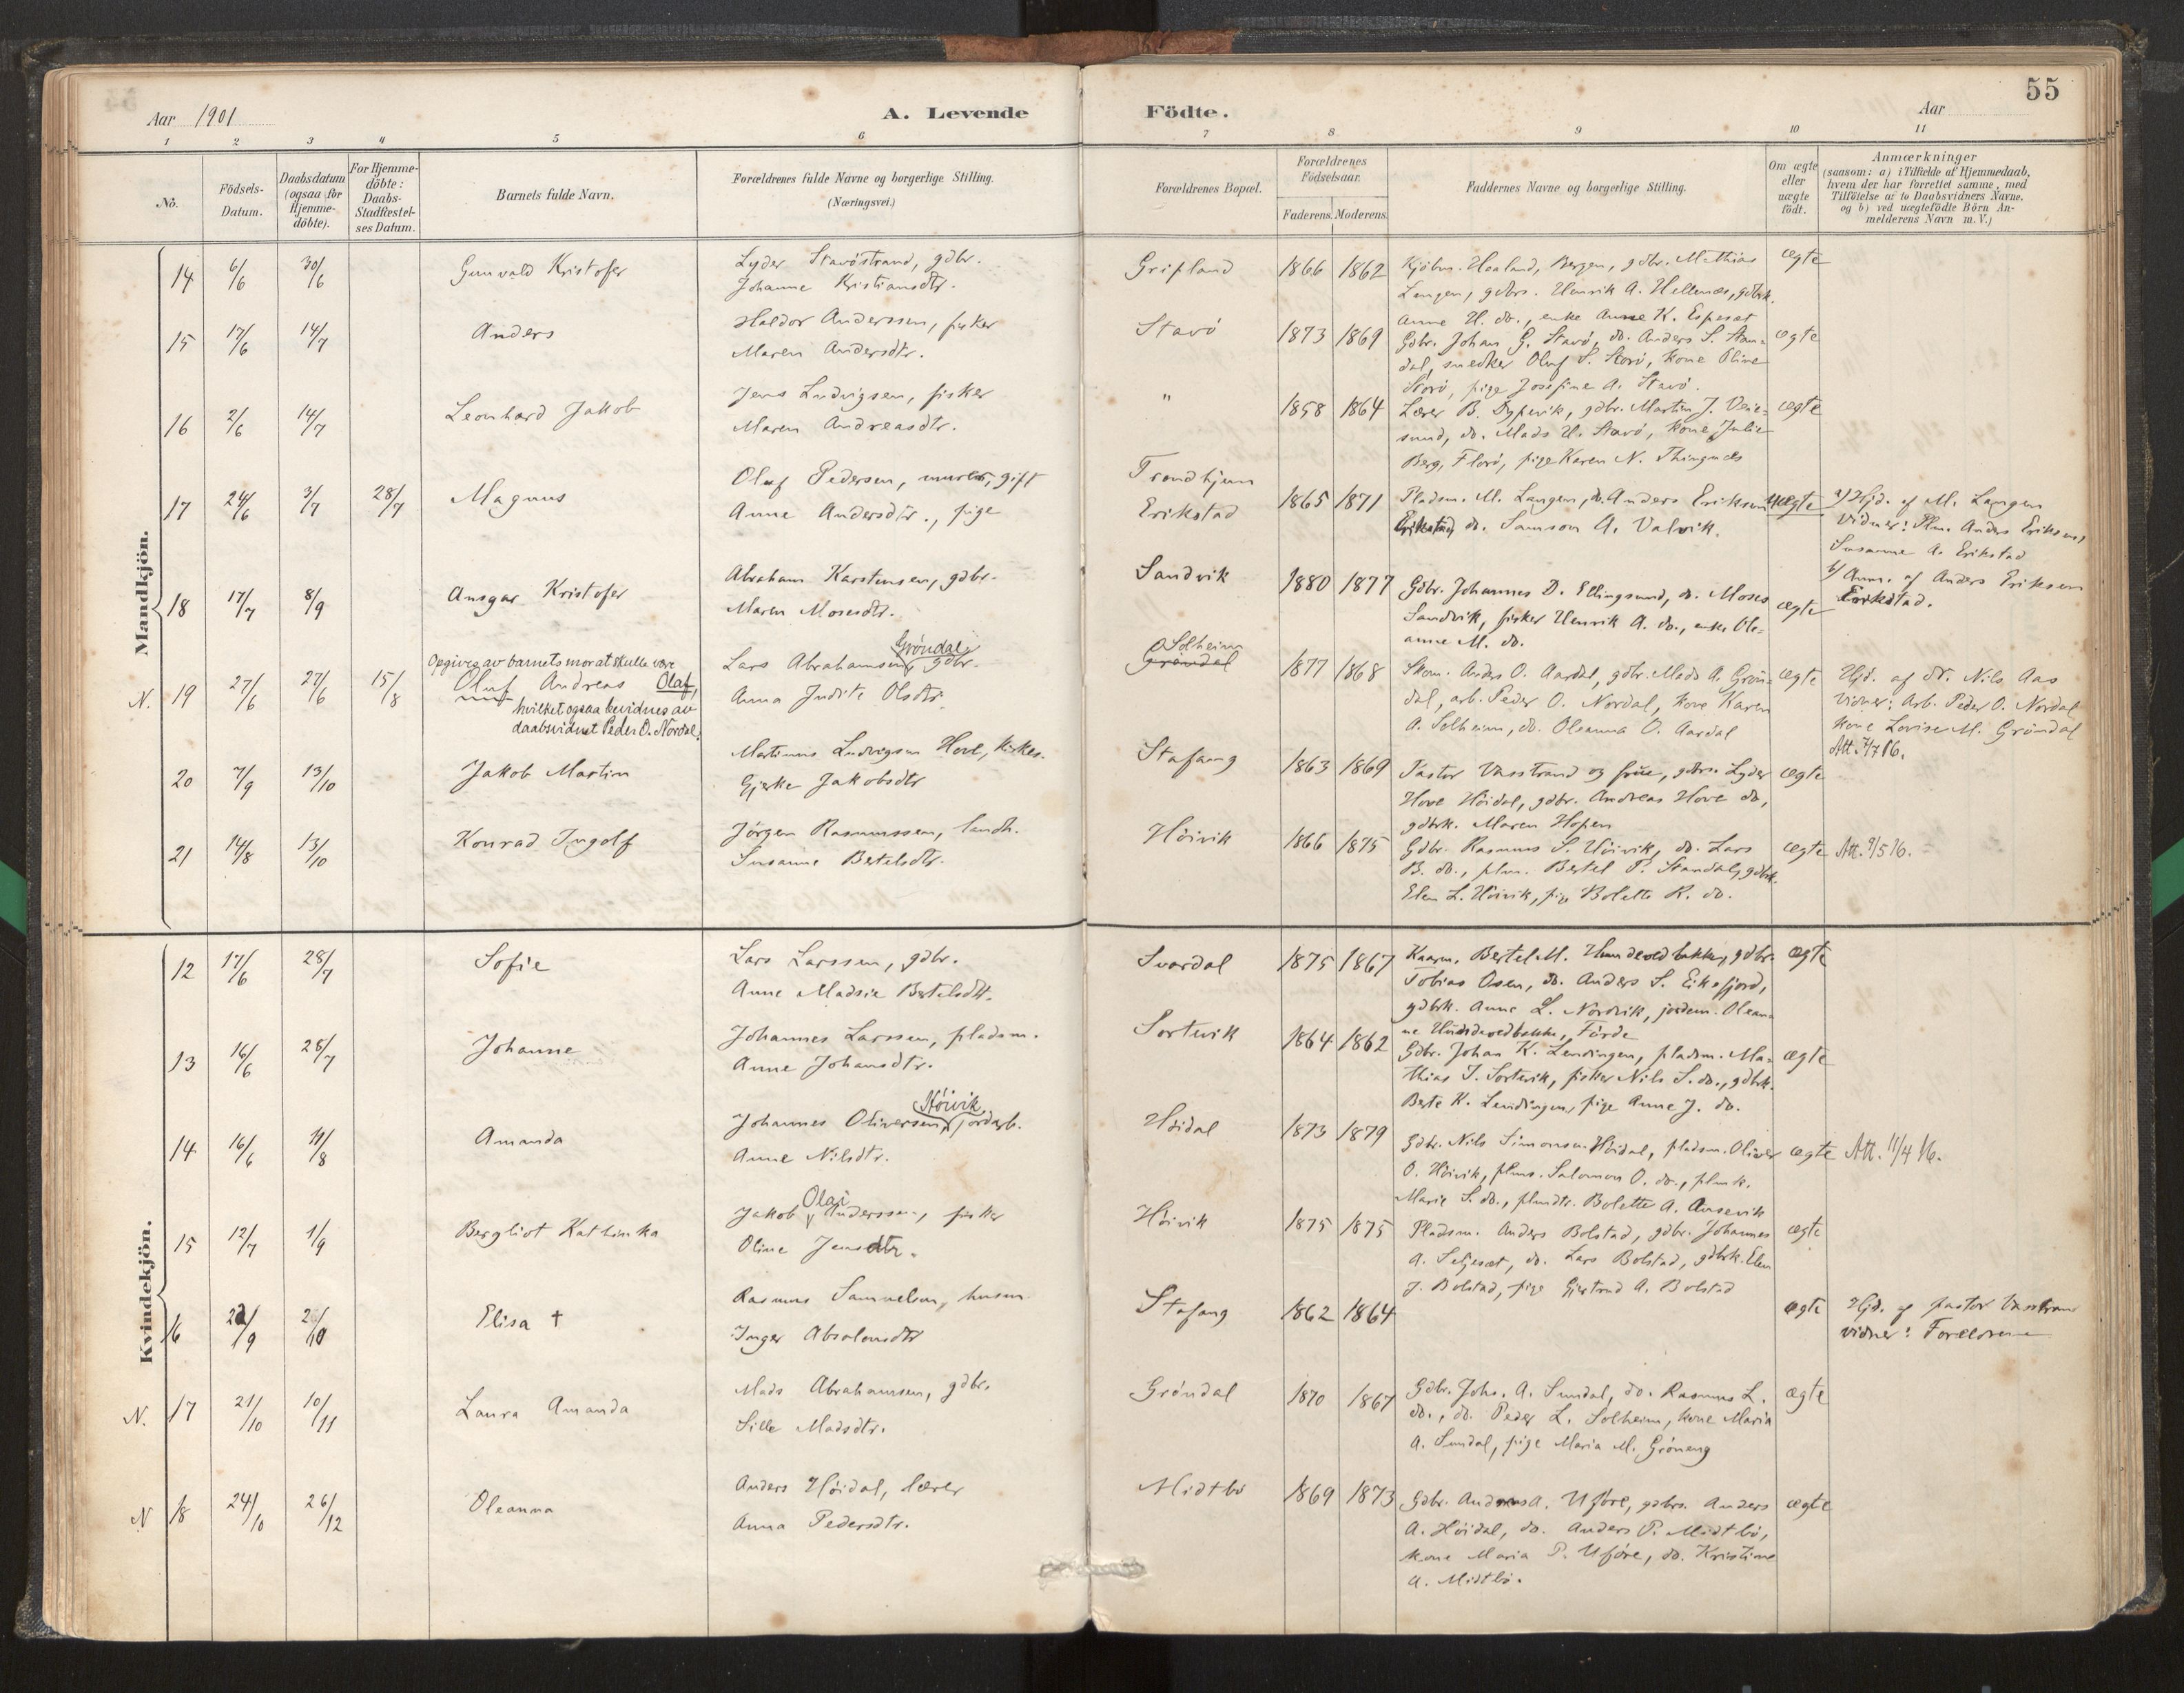 55
Aar 1901
A. Levende
Födte.
Aar
1 2 3 4 5 6 7 8 9 10 11
No.
Födsels-Datum.
Daabsdatum (ogsaa for Hjemme-döbte).
For Hjemme-döbte: Daabs-Stadfæstel-ses Datum.
Barnets fulde Navn.
Forældrenes fulde Navne og borgerlige Stilling. (Næringsvei.)
Forældrenes Bopæl.
Forældrenes Födselsaar.
Faderens. Moderens.
Faddernes Navne og borgerlige Stilling.
Om ægte eller uægte födt.
Anmærkninger
(saasom: a) i Tilfælde af Hjemmedaab,
hvem der har forrettet samme, med
Tilföielse af to Daabsvidners Navne.
og b) ved uægtefödte Börn An-
melderens Navn m. V.)
Mandkjön.
14 6/6 30/6 Gunvald Kristofer
Lyder Stavöstrand, gdbr.
Johanne Kristiansdtr.
Gripland 1866 1862
Kjöbm. Hoaland, Bergen, gdbr. Mathias
Langen, gdbrs. Henrik A. Hellenes, gdbrk.
Anne H. do., enke Anne K. Espeset
ægte
15 17/6 14/7 Anders
Haldor Anderssen, fisker
Maren Andersdtr.
Stavö 1873 1869
Gdbr. Johan G. Stavö, do. Anders S. Stan-
dal, snedker Oluf S. Storö, kone Oline
Storö, pige Josefine A. Stavö.
ægte
16 2/6 14/7 Leonhard Jakob
Jens Ludvigsen, fisker
Maren Andreasdtr.
" 1858 1864
Lærer B. Dypevik, gdbr. Martin J. Veie-
sund, do. Mads H. Stavö, kone Julie
Berg, Florö, pige Karen N. Thingnæs
ægte
17 24/6 3/7 28/7 Magnus
Oluf Pedersen, murer, gift
Anne Andersdtr., pige
Trondhjem
Erikstad
1865 1871
Pladsm. M. Langen, do. Anders Eriksen
Erikstad, do. Samson A. Valvik.
uægte
a) Hjd. af M. Langen
Vidner: Plm. Anders Eriksen,
Susanne A. Erikstad
b) Anm. af Anders Eriksen
Erikstad.
18 17/7 8/9 Ansgar Kristofer
Abraham Karstensen, gdbr.
Maren Mosesdtr.
Sandvik 1880 1877
Gdbr. Johannes D. Ellingsund, do. Moses
Sandvik, fisker Henrik A. do., enke Ole-
anne M. do.
ægte
N. 19 27/6 27/6 15/8
Opgives av barnets mor at skulle være
Oluf Andreas Olaf,
hvilket ogsaa bevidnes av
daabsvidnet Peder O. Nordal.
Gröndal
Lars Abrahamsen, gdbr.
Anna Judite Olsdtr.
Solheim
Gröndal
1877 1868
Skom. Anders O. Aardal, gdbr. Mads A. Grön-
dal, arb. Peder O. Nordal, kone Karen
A. Solheim, do. Oleanna O. Aardal
ægte
Hjd. af dr. Nils Aas
Vidner: Arb. Peder O. Nordal,
kone Lovise M. Gröndal
Att. 7/7 16.
20 7/9 13/10 Jakob Martin
Martinus Ludvigsen Hove, kirkes.
Gjerke Jakobsdtr
Stafang 1863 1869
Pastor Vasstrand og frue, gdbr. Lyder
Hove Höidal, gdbr. Andreas Hove do,
gdbrk. Maren Hopen
ægte
21 14/8 13/10 Konrad Ingolf
Jörgen Rasmussen, landh.
Susanne Bertelsdtr.
Höivik 1866 1875
Gdbr. Rasmus S. Höivik, do. Lars
B. do., plm. Bertel P. Standal, gdbrk.
Elen L. Höivik, pige Bolette R. do.
ægte Att. 9/5 16.
Kvindekjön.
12 17/6 28/7 Sofie
Lars Larssen, gdbr.
Anne Madsie Bertelsdtr.
Svardal 1875 1867
Kaarm. Bertel M. Hundevedbakke, gdbr.
Tobias Osen, do. Anders S. Eikefjord,
gdbrk. Anne L. Nordvik, jordem. Olean-
ne Hundevedbakke, Förde
ægte
13 16/6 28/7 Johanne
Johannes Larssen, pladsm.
Anne Johansdtr.
Sortevik 1864 1862
Gdbr. Johan K. Lendingen, pladsm. Ma-
thias J. Sortevik, fisker Nils S. do., gdbrk.
Berte K. Lendingen, pige Anne J. do.
ægte
14 16/6 4/8 Amanda
Höivik
Johannes Oliversen, jordarb.
Anne Nilsdtr.
Höidal 1873 1879
Gdbr. Nils Simonsen Höidal, pladsm. Oliver
O. Höivik, plms. Salomon O. do., plmk.
Marie S. do., plmdtr. Bolette A. Ausevik
ægte Att. 11/4 16.
15 12/7 1/9 Bergliot Kathinka
Olai
Jakob Anderssen, fisker
Oline Jensdtr.
Höivik 1875 1875
Pladsm. Anders Bolstad, gdbr. Johannes
A. Seljeset, do. Lars Bolstad, gdbrk. Elen
J. Bolstad, pige Gjertrud A. Bolstad
ægte
16 22/9 2/10 Elisa †
Rasmus Samuelsen, husm.
Inger Absalonsdtr
Stafang 1862 1864
ægte
Hjd. af pastor Vasstrand
vidner: Forældrene
N. 17 21/10 10/11 Laura Amanda
Mads Abrahamsen, gdbr.
Sille Madsdtr.
Gröndal 1870 1867
Gdbr. Johs. A. Sundal, do. Rasmus L.
do., do. Peder L. Solheim, kone Maria
A. Sundal, pige Maria M. Gröneng
ægte
N 18 24/10 26/12 Oleanna
Anders Höidal, lærer
Anna Pedersdtr.
Midtbö 1869 1873
Gdbr. Andreas A. Uföre, gdbrs. Anders
A. Höidal, do. Anders P. Midtbö,
kone Maria P. Uföre, do. Kristine
A. Midtbö.
ægte